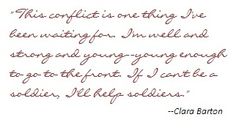 "This conflict is one thing I've
been waiting for. I'm well and
strong and young--young enough
to go to the front. If I can't be a
soldier, I'll help soldiers."
--Clara Barton